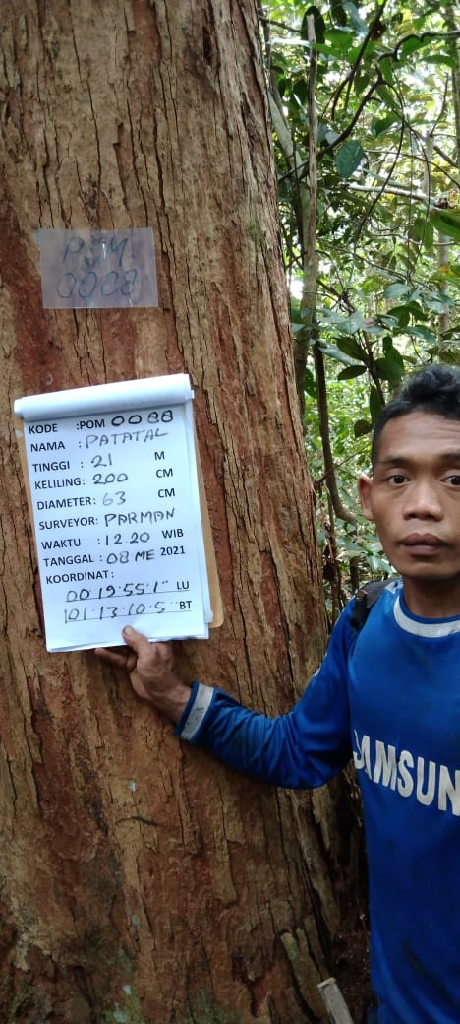 PSM
0008
KODE :POM 0008
NAMA : PATATAL
TINGGI : 21 M
KELILING: 200 CM
DIAMETER: 63 CM
SURVEYOR: PARMAN
WAKTU : 12 20 WIB
TANGGAL : 08 ME 2021
KOORDINAT:
00 19'55'1" LU
101'13'10'5" BT
SAMSUN